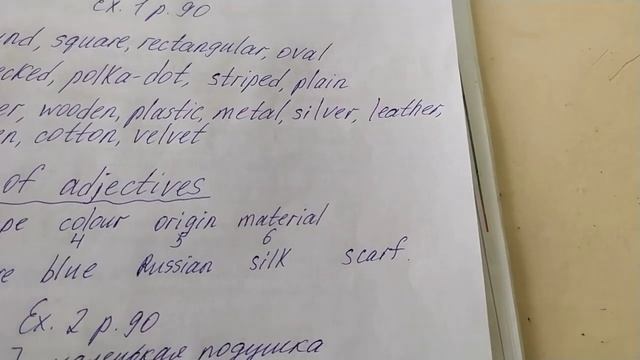 Ex. 1 p. 90
square, rectangular, oval
polka-dot, striped, plain
wooden, plastic, metal, silver, leather,
cotton, velvet
of adjectives
colour origin material
4 5 6
blue Russian silk scarf.
Ex. 2 p. 90
маленькая подушка